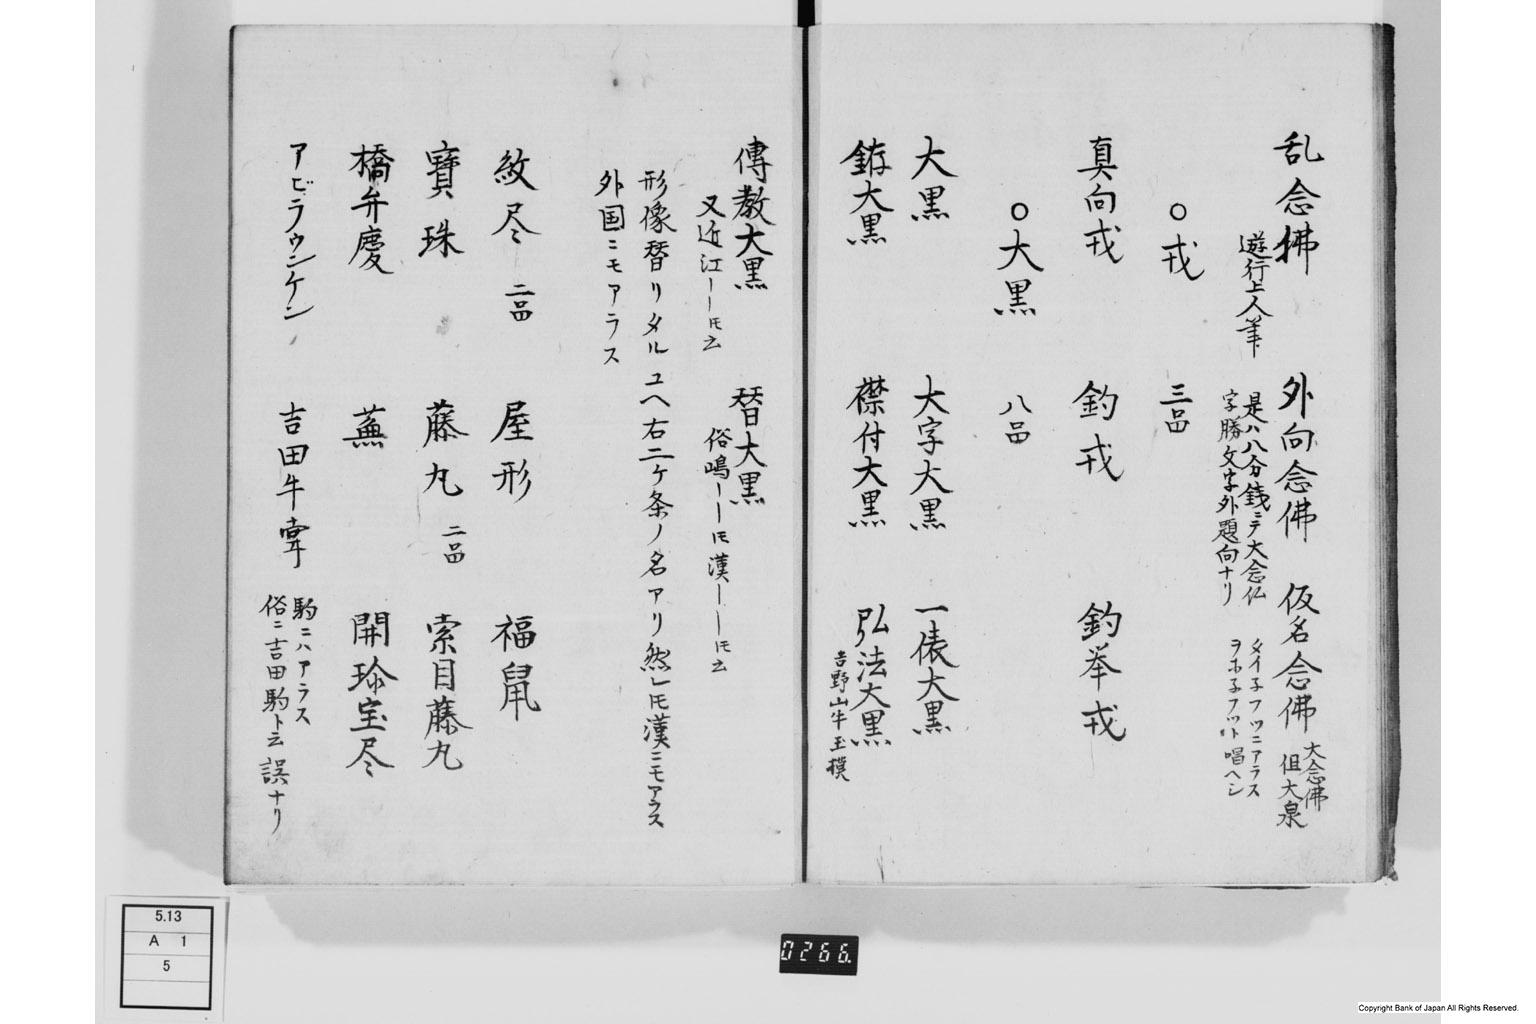 乱念佛　外向念佛　仮名念佛
大念佛
但大泉
遊行上人筆
是ハ八分銭ニテ大念仏
字勝文字外題向ナリ
メイ子フツニアラス
唱ヘシ
○戎　三品
真向戎　釣戎　釣举戎
○大黒　八品
大黒　大字大黒　一俵大黒
大黒　襟付大黒　弘法大黒
吉野山牛玉撲
傳教大黒　替大黒
又近江ーーモ云
俗嶋ーーモ漢ーーモ云
形像替リタルユヘ右二ケ条ノ名アリ然レモ漢ニモアラス
外国ニモアラス
紋尽　二品　屋形　福鼠
寶珠　藤丸　二品　索目藤丸
橋弁慶　蕪　開珎宝尽
アビラウンケン　吉田牛牽
駒ニハアラス
俗ニ吉田駒ト云誤ナリ
5.13
A 1
5
0266.
Copyright Bank of Japan All Rights Reserved.